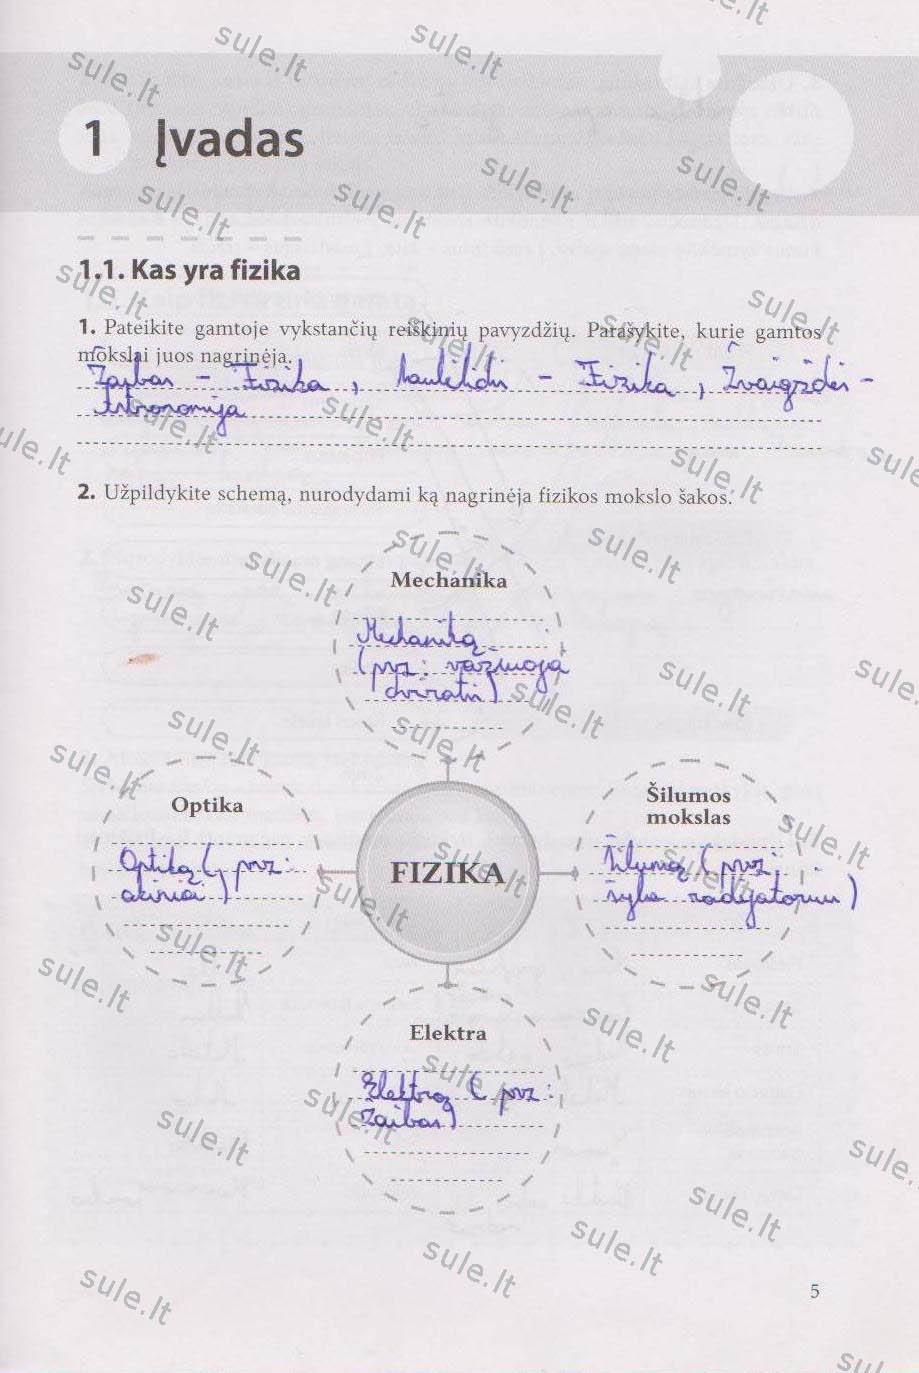 1 Įvadas
1.1. Kas yra fizika
1. Pateikite gamtoje vykstančių reiškinių pavyzdžių. Parašykite, kurie gamtos
mokslai juos nagrinėja.
Žaibas - Fizika, - Fizika, Žvaigždės -
Astronomija
2. Užpildykite schemą, nurodydami ką nagrinėja fizikos mokslo šakos.
Mechanika
Mechaniką
(pvz: važiuoja
dviratis)
Optika
Optiką (pvz:
akiniai)
FIZIKA
Šilumos
mokslas
Šilumą (pvz:
šyla radijatorius)
Elektra
Elektrą (pvz:
žaibas)
5
sule.lt